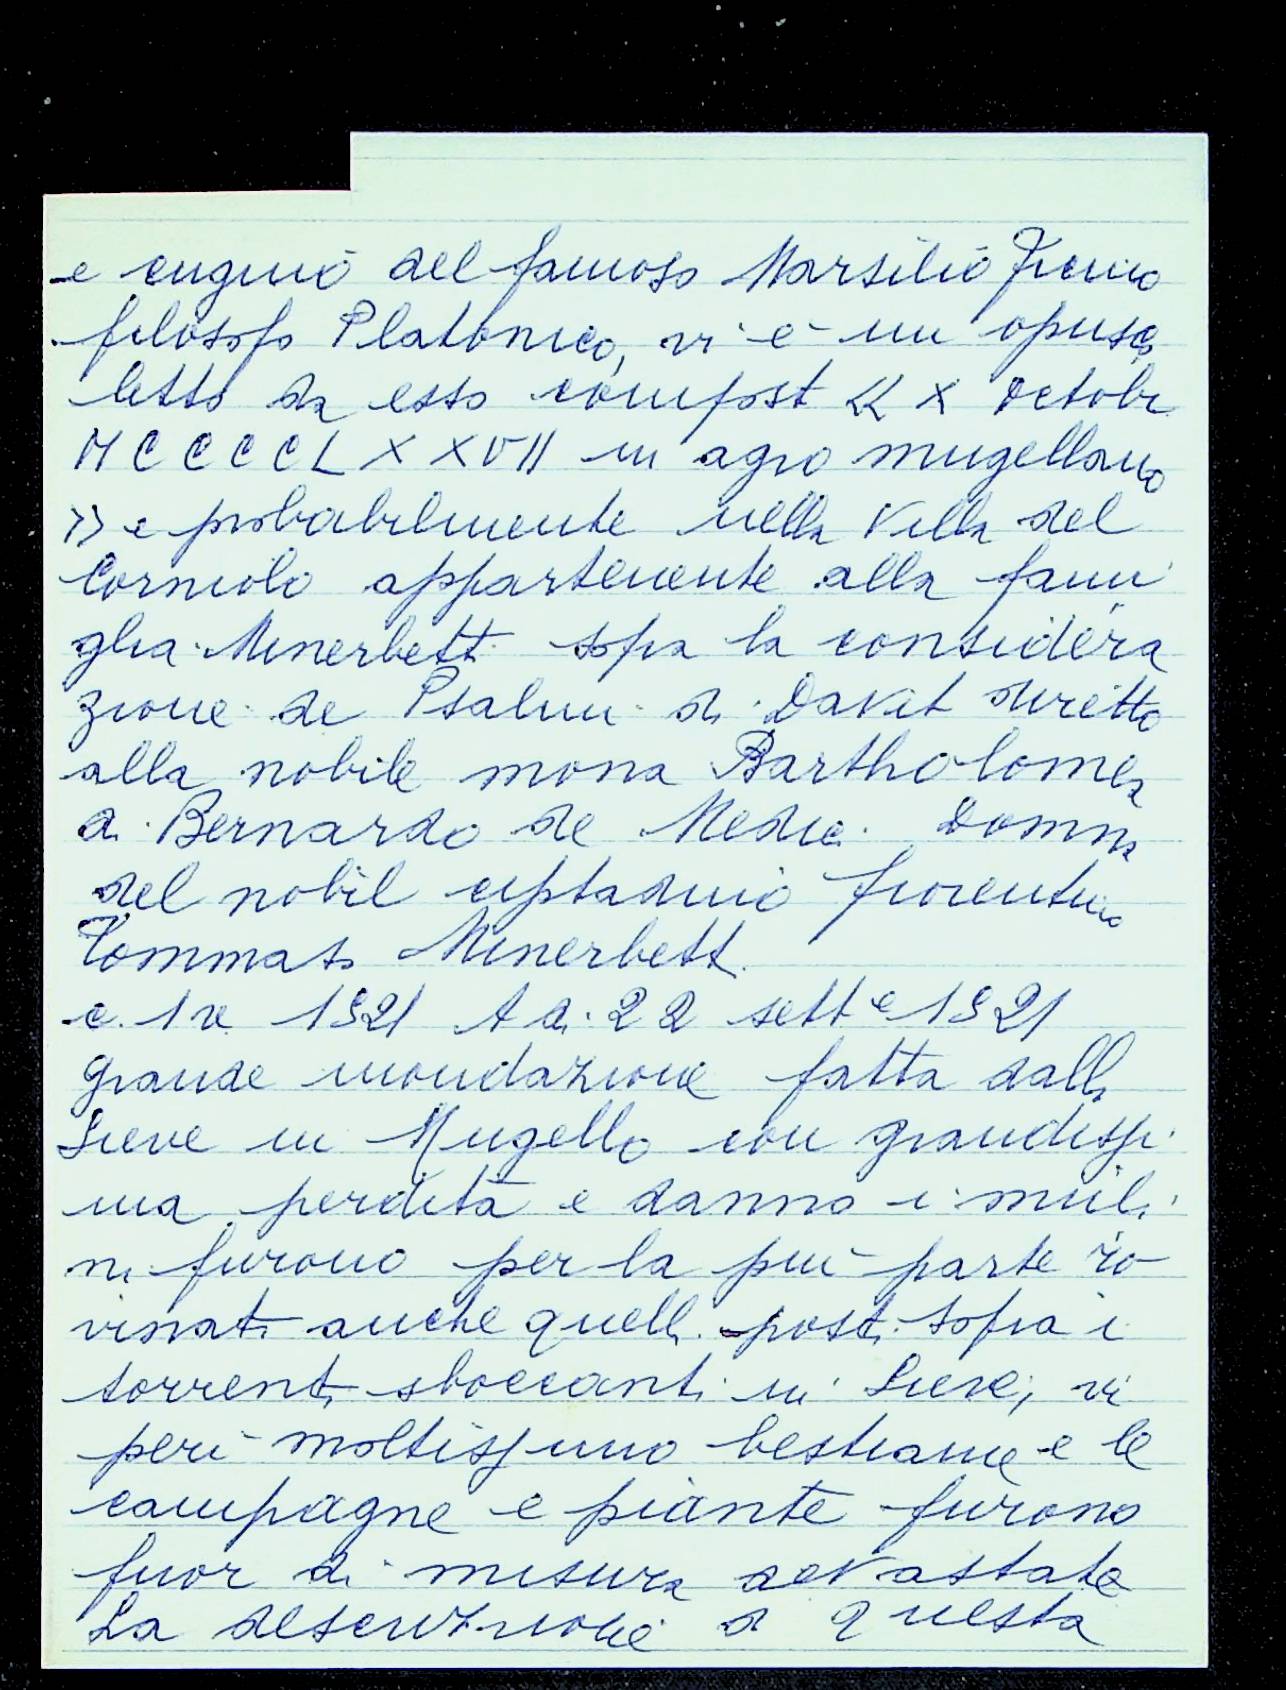 e cugino del famoso Marsilio Ficino
filosofo Platonico, vi è un opusco
letto da esso compost << X Octobr
MCCCCLXXVII in agro mugellano
>> e probabilmente nella Villa del
Corniolo appartenente alla fami
glia Minerbetti sopra la considera
zione de Psalmi di Davit diretto
alla nobile mona Bartholomea
di Bernardo de Medici Donna
del nobil ciptadino fiorentino
Tommaso Minerbetti
c. 1 1521 A di 22 sett e 1521
grande inondazione fatta dalla
Sieve in Mugello con grandissi
ma perdita e danno i muli
ni furono per la più parte ro
vinati anche quelli posti sopra i
torrenti sboccanti in Sieve, vi
perì moltissimo bestiame e le
campagne e piante furono
fuor di misura devastate
La descrizione di questa